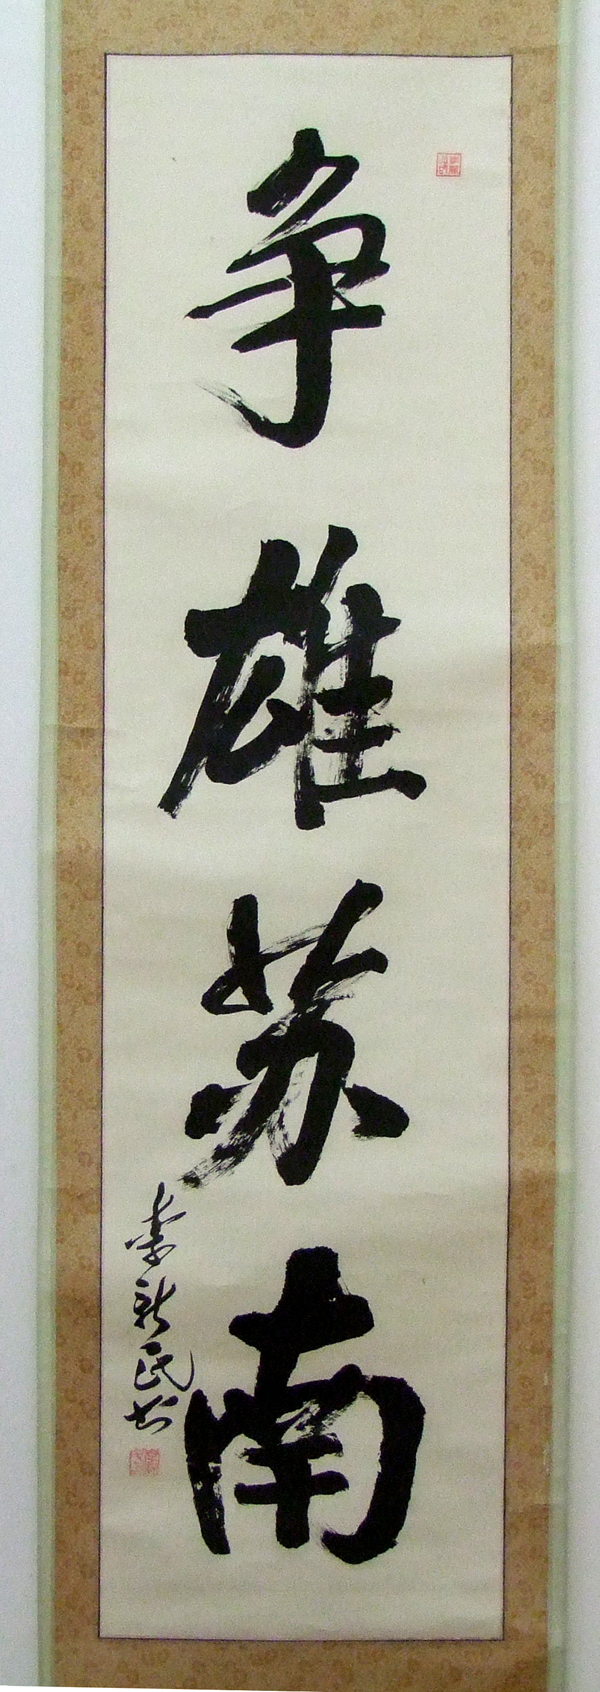 争雄苏南
李新民书